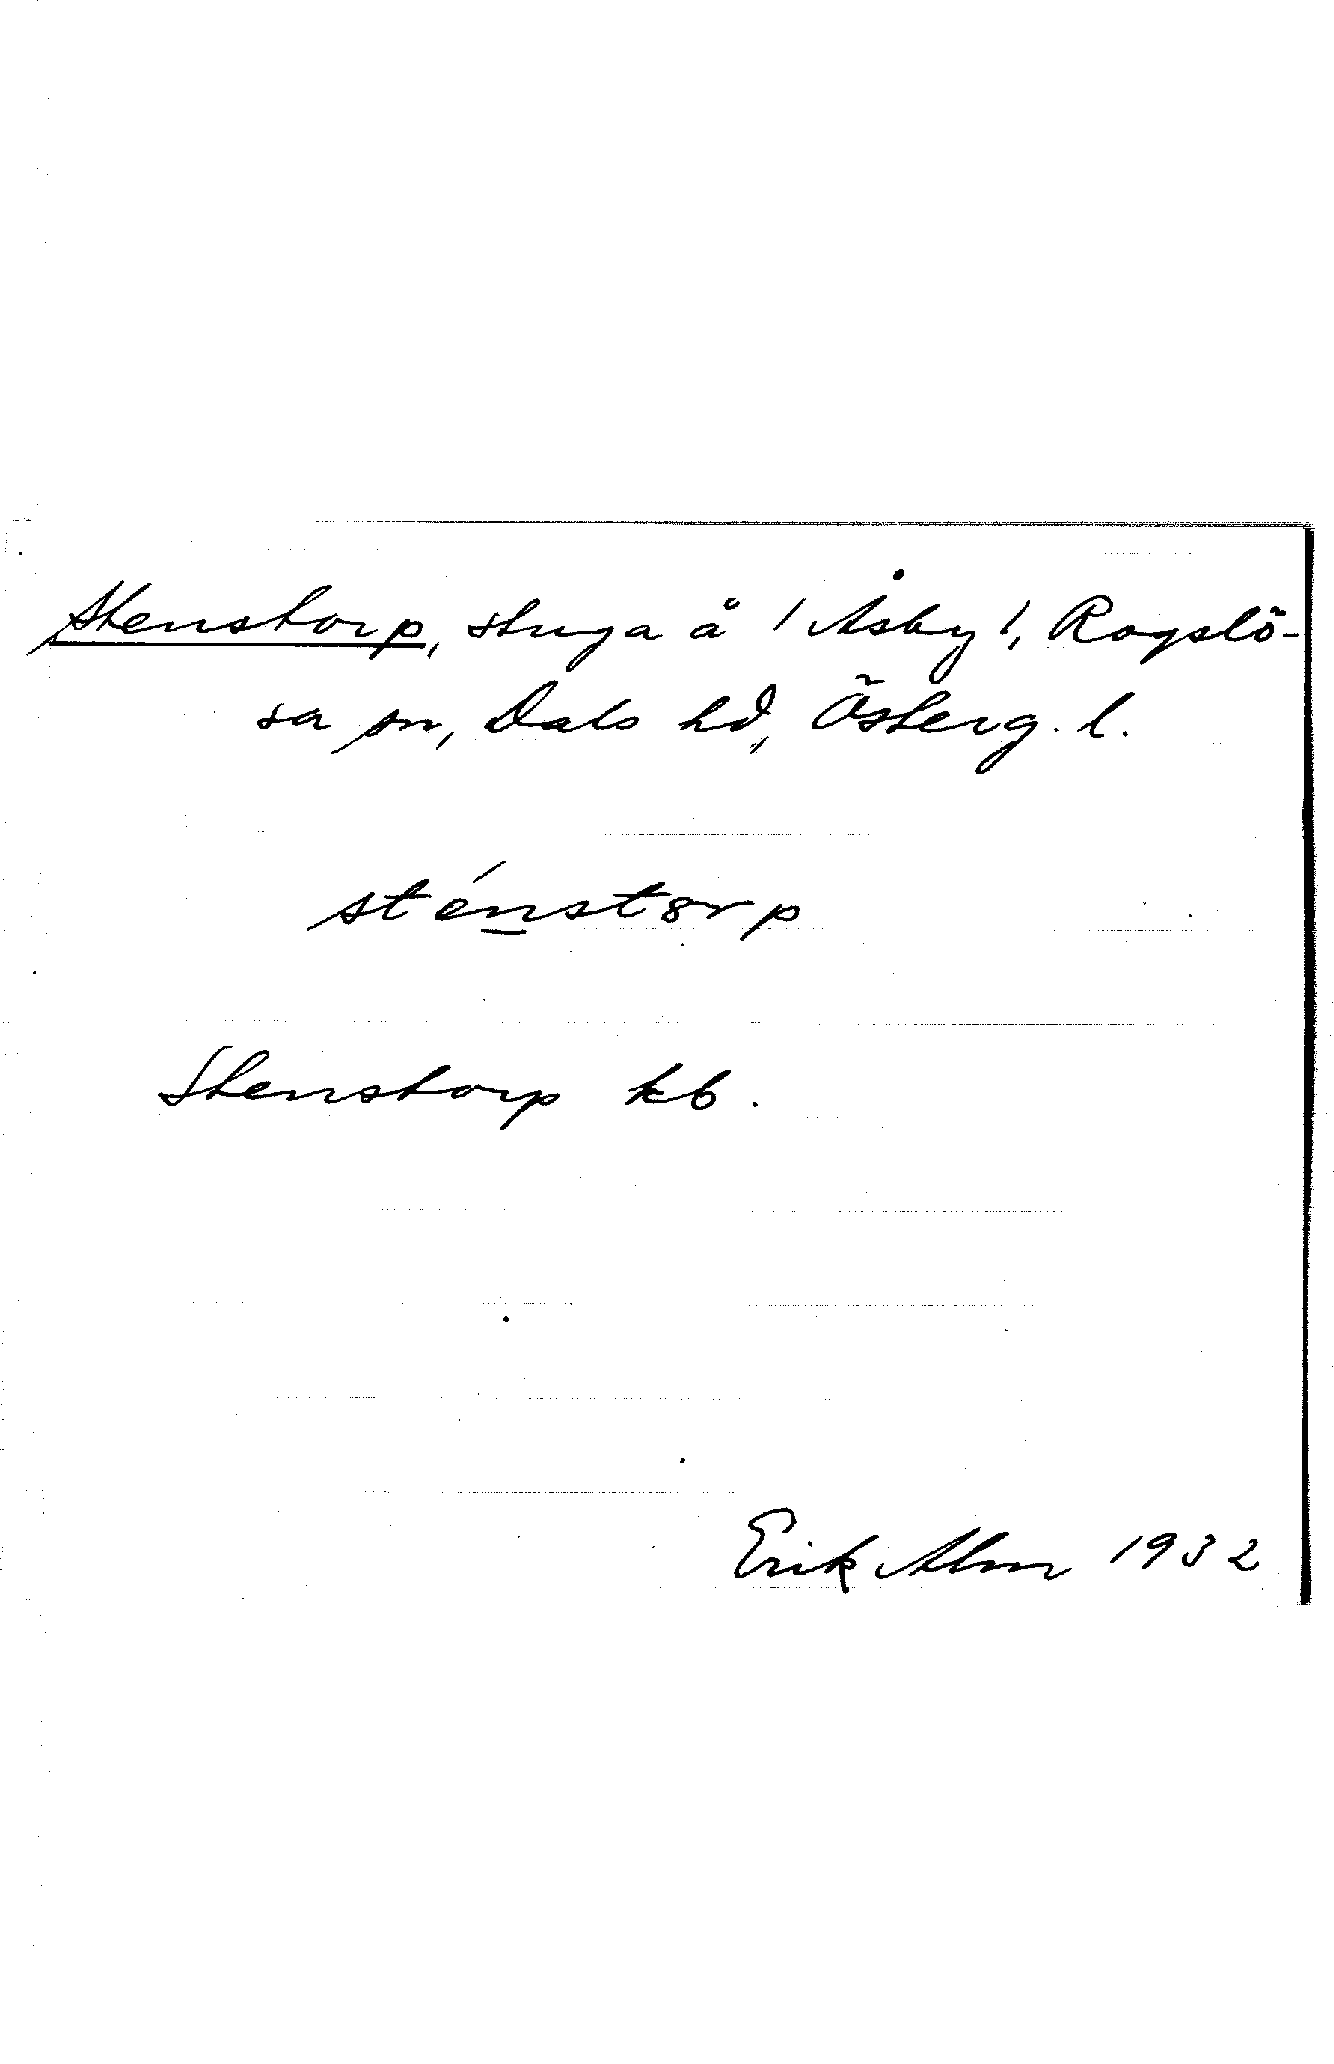 Stenstorp, stuga å /Åsby/, Rogslö-
sa sn, Dals hd, Österg. l.
sténstorp
Stenstorp kb.
Erik Alm 1932